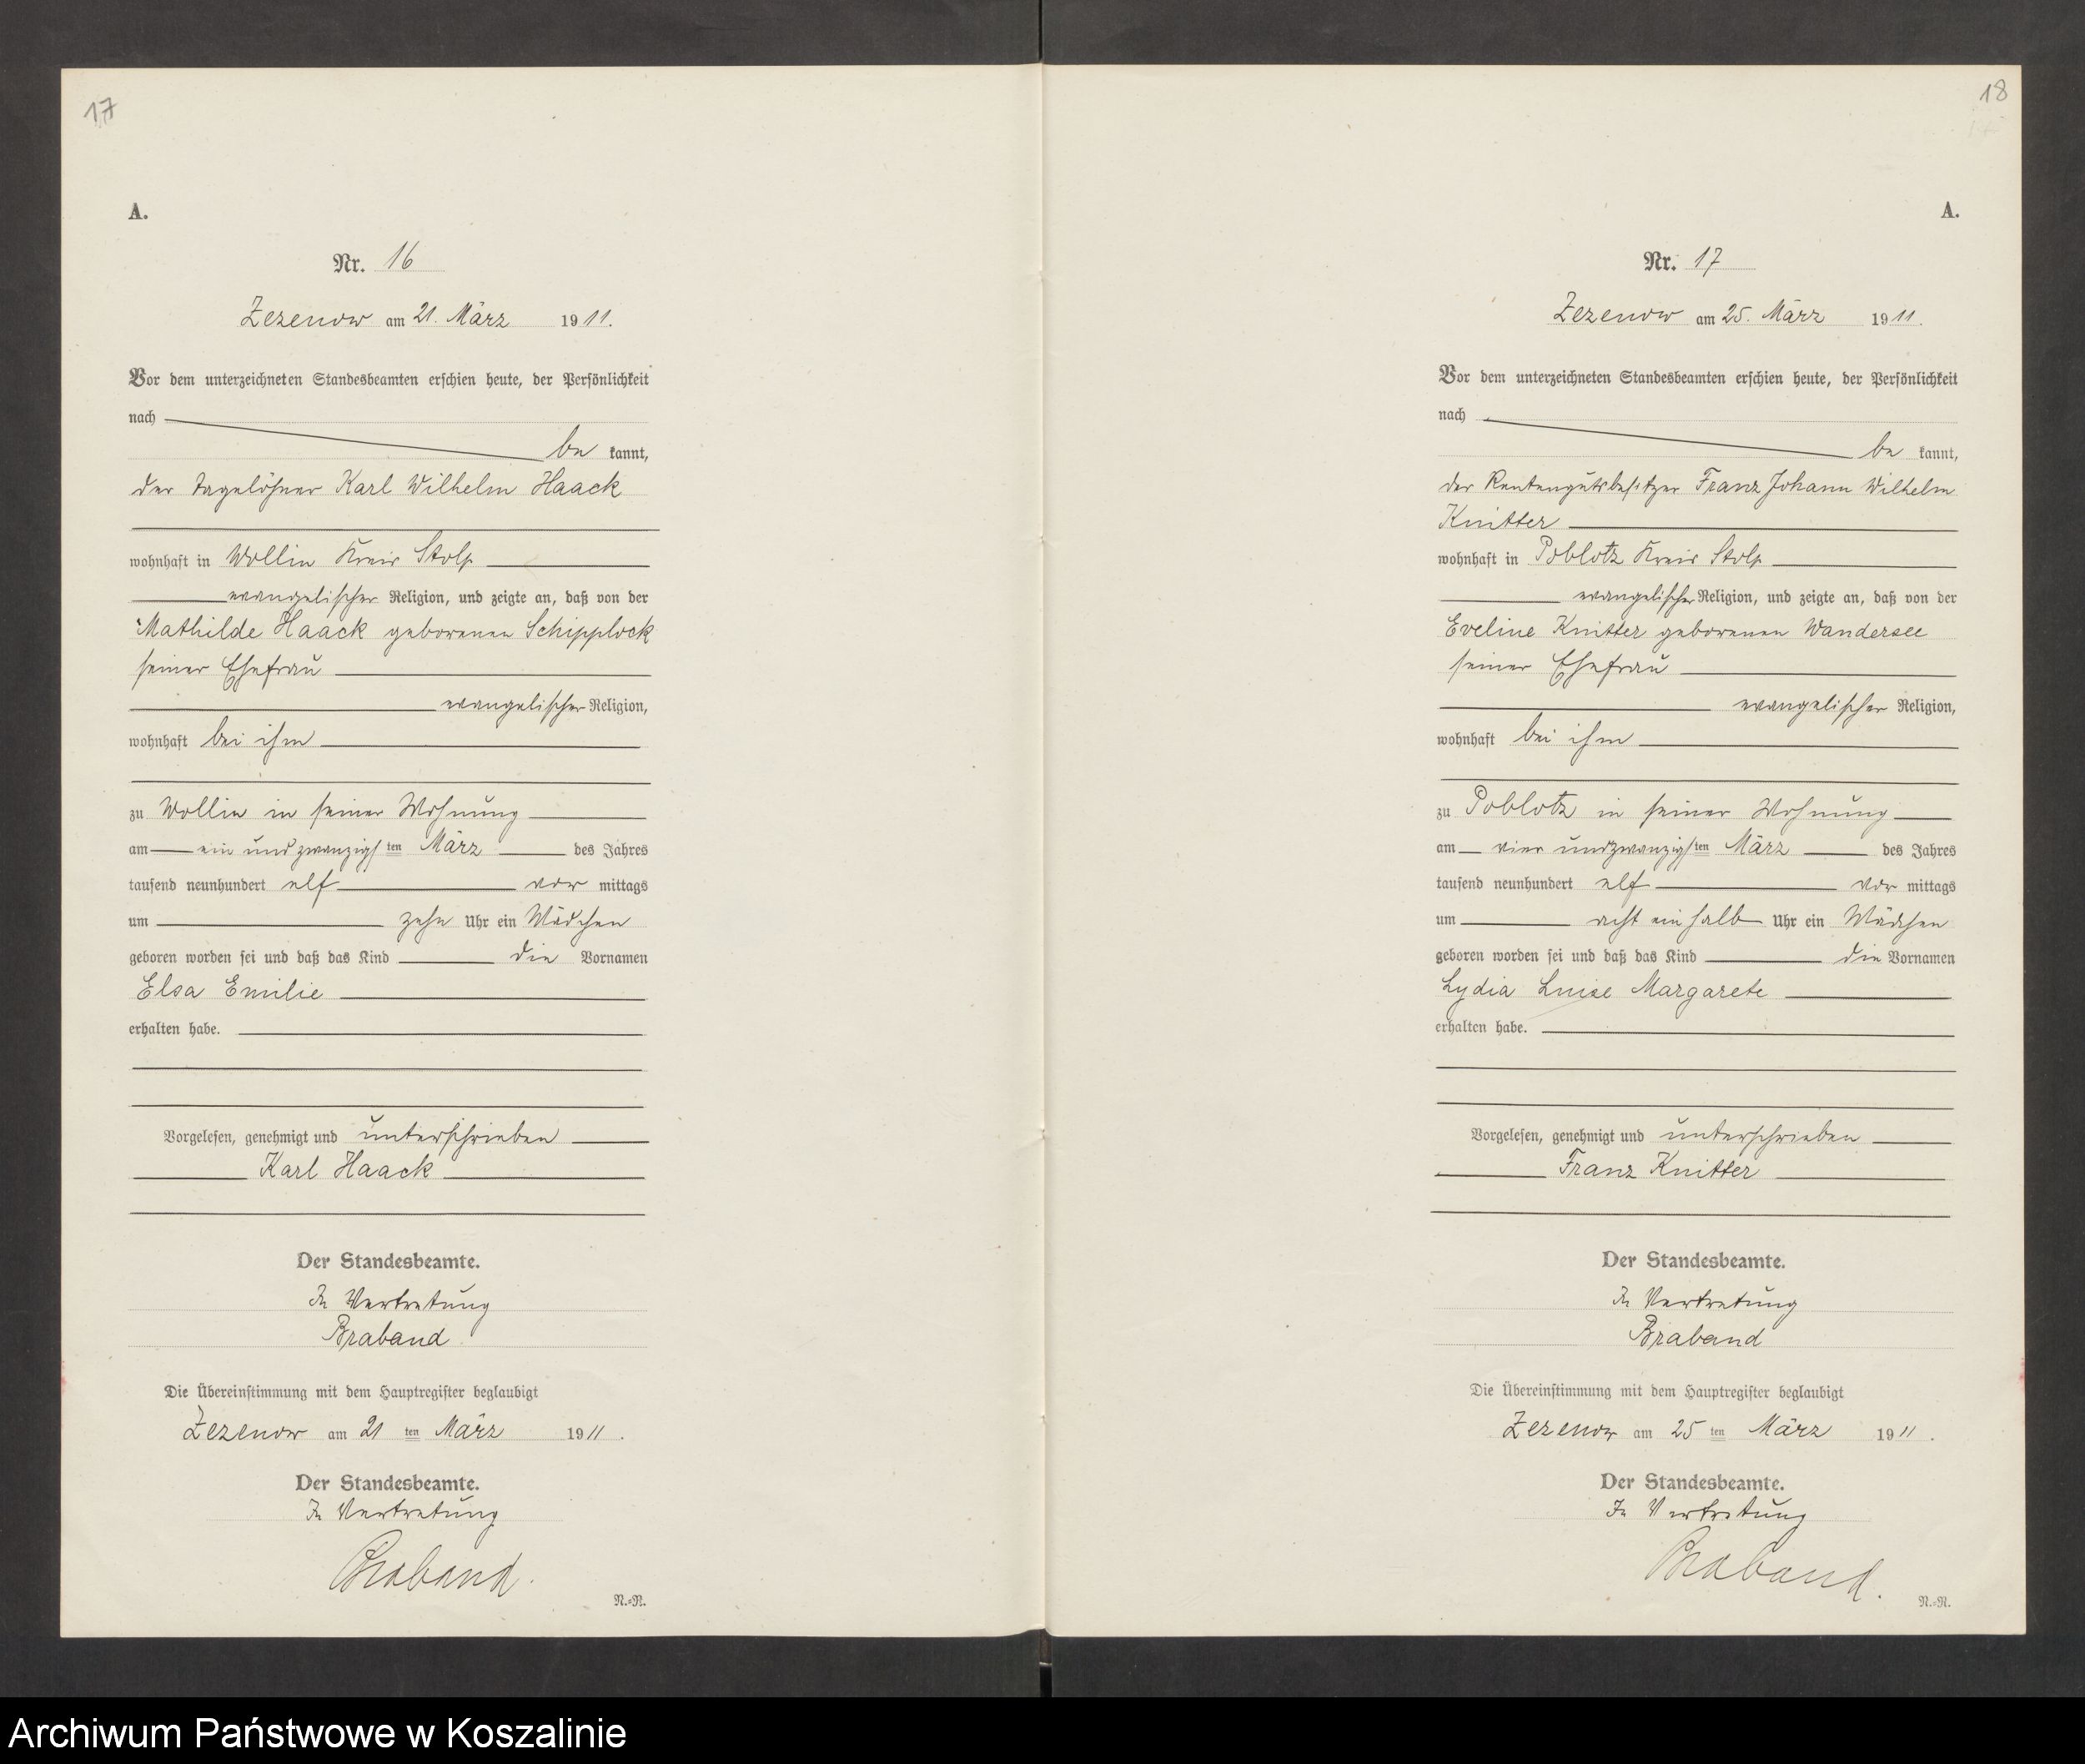 17
A.
Nr. 16
Zezenow am 21. März 1911.
Vor dem unterzeichneten Standesbeamten erschien heute, der Persönlichkeit
nach
be kannt,
der Tagelöhner Karl Wilhelm Haack
wohnhaft in Wollin Kreis Stolp
evangelischer Religion, und zeigte an, daß von der
Mathilde Haack geborenen Schipplock
seiner Ehefrau
evangelischer Religion,
wohnhaft bei ihm
zu Wollin in seiner Wohnung
am ein und zwanzigsten März des Jahres
tausend neunhundert elf vor mittags
um zehn Uhr ein Mädchen
geboren worden sei und daß das Kind die Vornamen
Elsa Emilie
erhalten habe.
Vorgelesen, genehmigt und unterschrieben
Karl Haack
Der Standesbeamte.
In Vertretung
Braband
Die Übereinstimmung mit dem Hauptregister beglaubigt
Zezenow am 21 ten März 1911.
Der Standesbeamte.
In Vertretung
Braband.
N.=N.
18
A.
Nr. 17
Zezenow am 25. März 1911.
Vor dem unterzeichneten Standesbeamten erschien heute, der Persönlichkeit
nach
be kannt,
der Rentengutsbesitzer Franz Johann Wilhelm
Knitter
wohnhaft in Poblotz Kreis Stolp
evangelischer Religion, und zeigte an, daß von der
Eveline Knitter geborenen Wandersee
seiner Ehefrau
evangelischer Religion,
wohnhaft bei ihm
zu Poblotz in seiner Wohnung
am vier undzwanzigsten März des Jahres
tausend neunhundert elf vor mittags
um acht ein halb Uhr ein Mädchen
geboren worden sei und daß das Kind die Vornamen
Lydia Luise Margarete
erhalten habe.
Vorgelesen, genehmigt und unterschrieben
Franz Knitter
Der Standesbeamte.
In Vertretung
Braband
Die Übereinstimmung mit dem Hauptregister beglaubigt
Zezenow am 25 ten März 1911.
Der Standesbeamte.
In Vertretung
Braband.
N.=N.
Archiwum Państwowe w Koszalinie